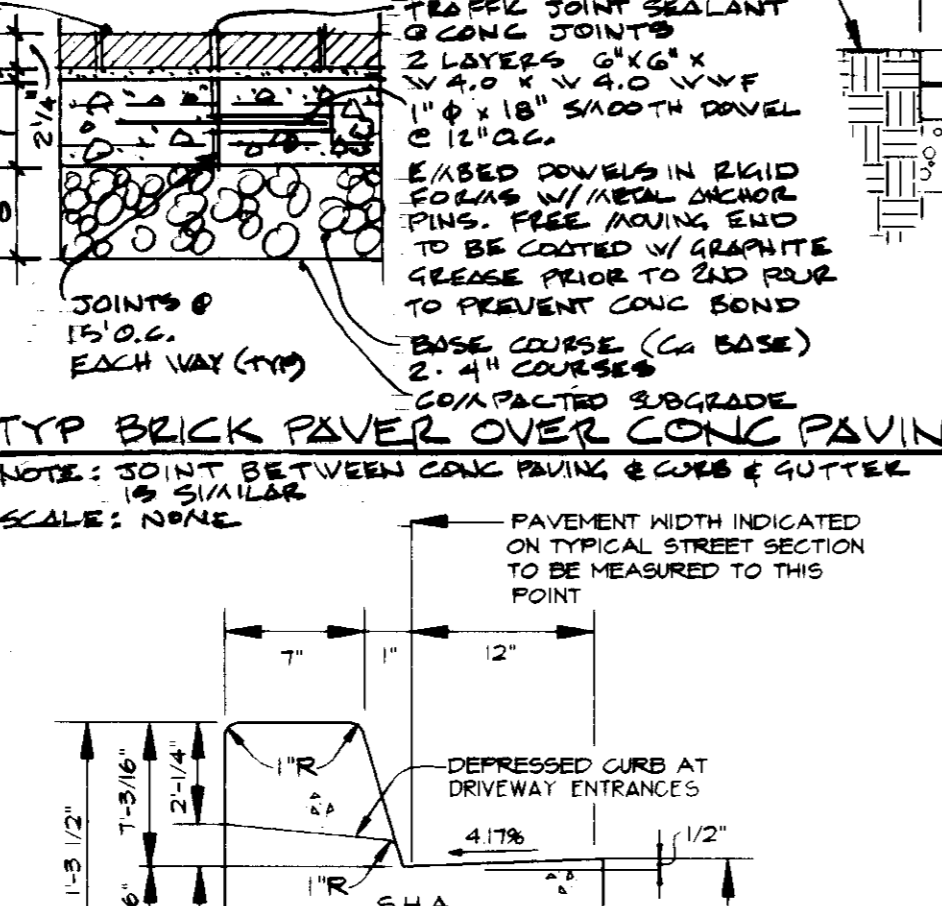 TRAFFIC JOINT SEALANT
@ CONC JOINTS
2 LAYERS 6"X6" X
W 4.0 X W 4.0 WWF
1" φ x 18" SMOOTH DOWEL
@ 12" O.C.
EMBED DOWELS IN RIGID
FORMS W/ METAL ANCHOR
PINS. FREE MOVING END
TO BE COATED W/ GRAPHITE
GREASE PRIOR TO 2ND POUR
TO PREVENT CONC BOND
2 1/4"
JOINTS @
15' O.C.
EACH WAY (TYP)
BASE COURSE (CG BASE)
2 - 4" COURSES
COMPACTED SUBGRADE
TYP BRICK PAVER OVER CONC PAVIN
NOTE: JOINT BETWEEN CONC PAVING & CURB & GUTTER
IS SIMILAR
SCALE: NONE
PAVEMENT WIDTH INDICATED
ON TYPICAL STREET SECTION
TO BE MEASURED TO THIS
POINT
7"
1"
12"
1'-3 1/2"
7'-3/16"
2'-1/4"
1"R
DEPRESSED CURB AT
DRIVEWAY ENTRANCES
4.17%
1/2"
6"
1"R
S.H.A.